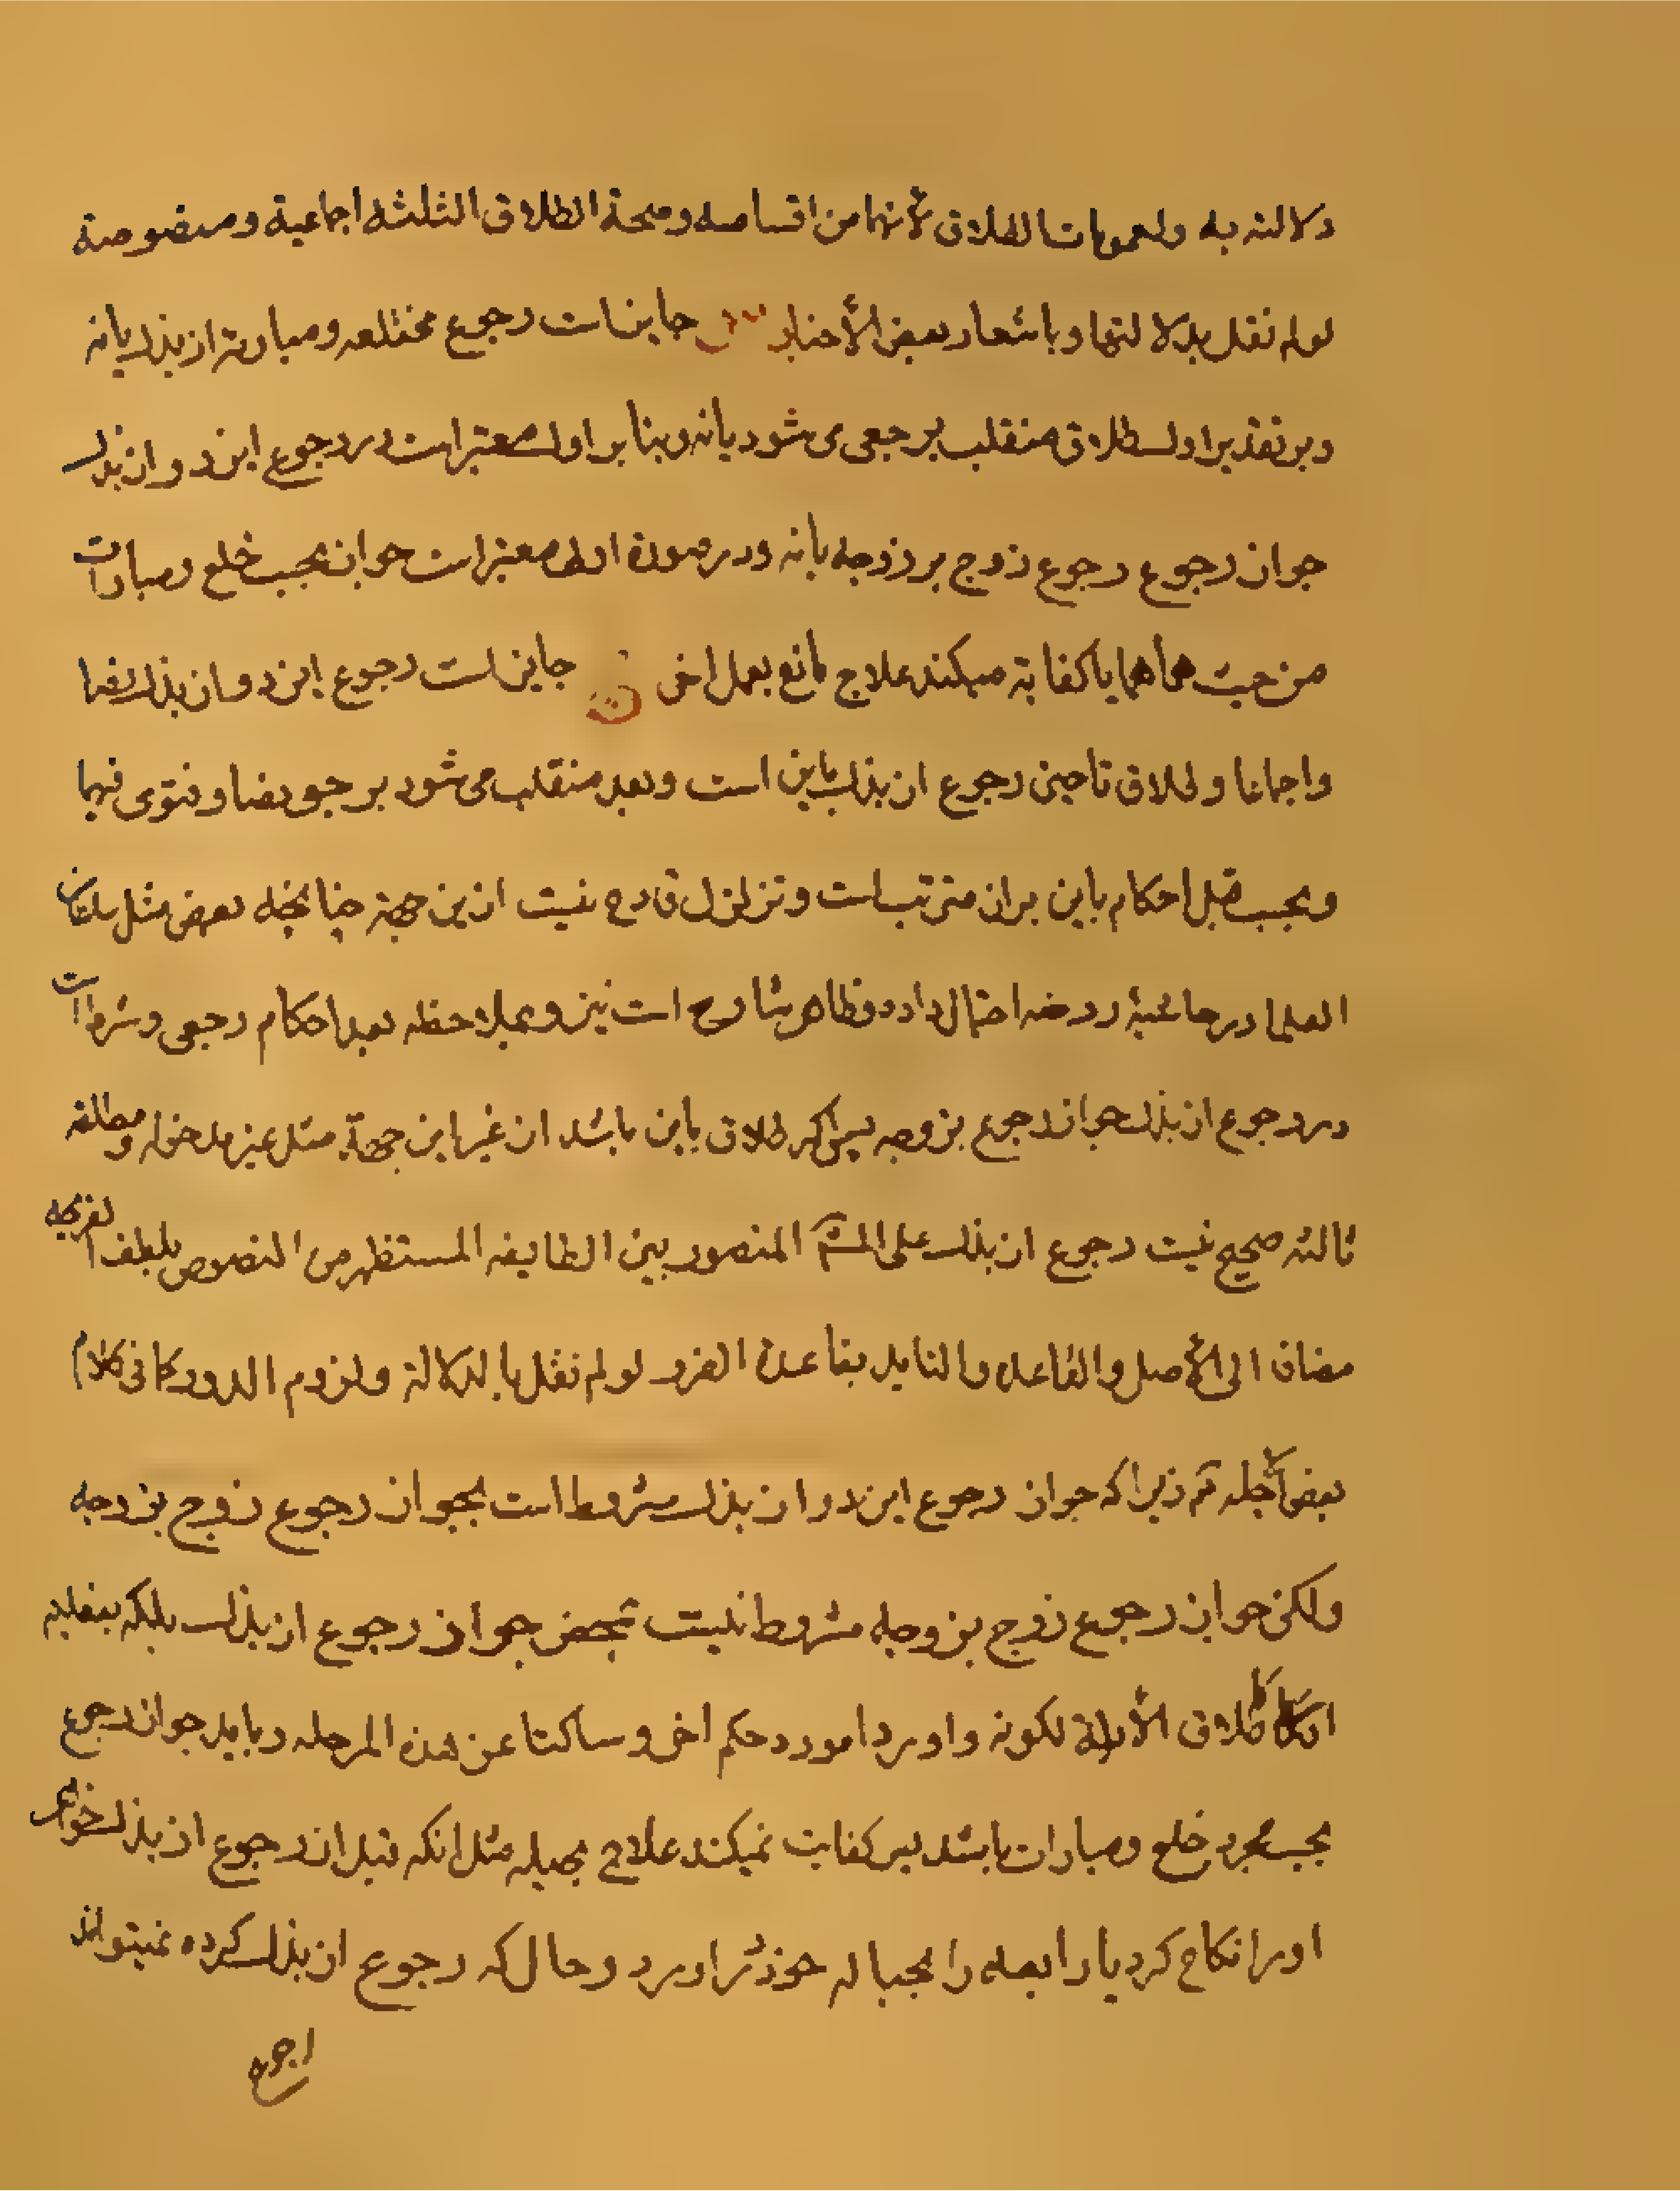 دلالته به ولعمومات الطلاق لأنهما من اقسامه وصحة الطلاق الثلثه اجماعية ومنصوصة
لو لم نقل بدلالتها وباشعار بعض الأخبار س جايز است رجوع مختلعه ومبارئه از بذل يا نه
وبر تقدير اول طلاق منقلب برجعى مى شود يا نه وبنا بر اول معتبر است در رجوع اين دو از بذل
جواز رجوع زوج بر زوجه يا نه ودر صورة اولى معتبر است جواز بحسب خلع ومبارات
من حيث هما هما يا كفاية ميكند علاج مانع بعمل اخر ن جايز است رجوع اين دو از بذل نصا
واجماعا وطلاق تا حين رجوع از بذل باين است وبعد منقلب مى شود برجعى نصا وفتوى فيهما
وبحسب قبل احكام باين بر ان مترتب است وتزلزل قادح نيست ازين جهة چنانچه بعض مثل سلطان
العلما در حاشيهٔ روضه احتمال داده وظاهر شارح است نيز وبملاحظه بعد احكام رجعى وشرط است
در رجوع از بذل جواز رجوع بزوجه پس اگر طلاق باين باشد از غير اين جهة مثل غير مدخوله ومطلقه
ثالثه صحيح نيست رجوع از بذل على المشهـ المنصور بين الطايفه المستظهر من النصوص بلطف القريحه
مضافا الى الأصل والقاعده والتايد بقاعدة الضرر لو لم نقل بالدلالة ولزوم الدور كما فى كلام
بعض الأجله ثم زيرا كه جواز رجوع اين دو از بذل مشروط است بجواز رجوع زوج بزوجه
ولكن جواز رجوع زوج بزوجه مشروط نيست بمحض جواز رجوع از بذل بلكه بفعليه
طلاق الأدلة لكونه واردا مورد حكم اخر وساكتا عن هذه المرحله وبايد جواز رجوع
بحسب مجرد خلع ومبارات باشد پس كفايت نميكند علاج بحيله مثل انكه قبل از رجوع از بذل خواهر
او را نكاح كرد يا رابعه را بحباله خود در اورد وحال كه رجوع از بذل كرده نميتواند